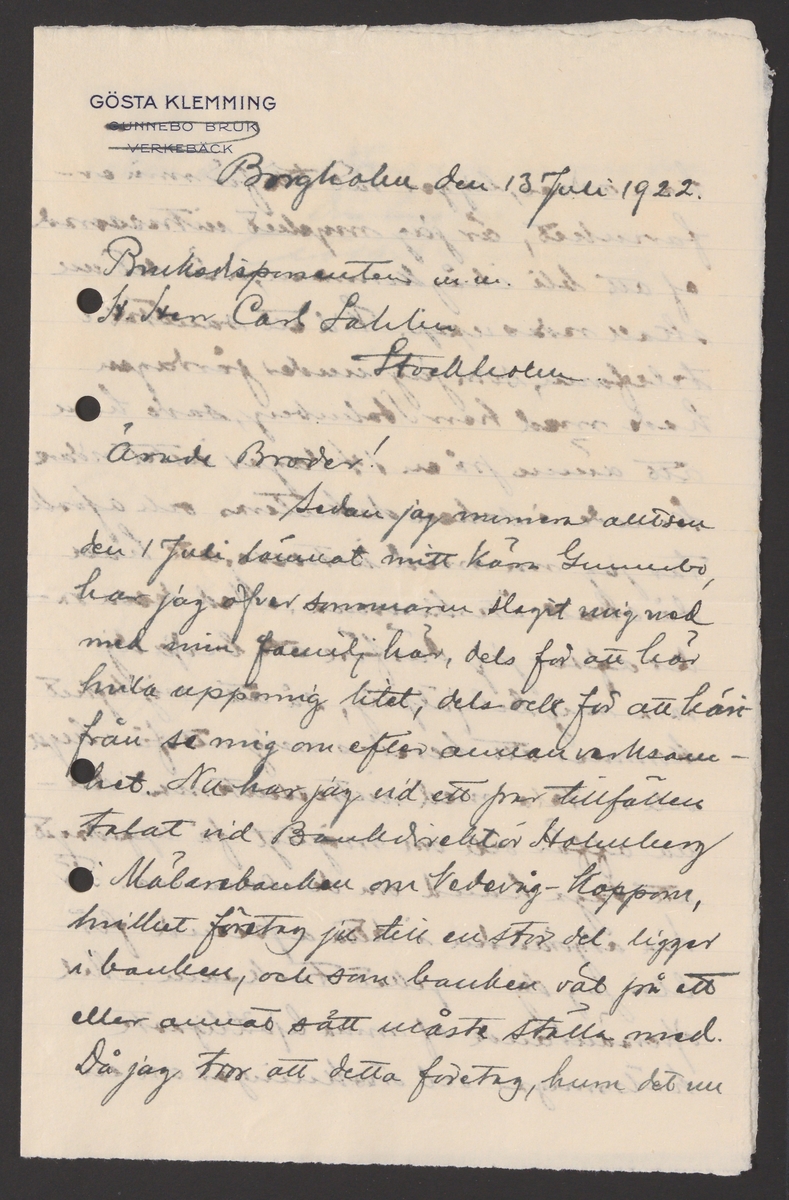 GÖSTA KLEMMING
GUNNEBO BRUK
VERKEBÄCK
Borgholm den 13 Juli 1922.
Bruksdisponenten m.m.
H. Herr Carl Sahlin
Stockholm.
Ärade Broder!
Sedan jag numera alltsen
den 1 Juli lämnat mitt kära Gunnebo,
har jag öfver sommaren slagit mig ned
med min familj här, dels för att här
hvila upp mig litet, dels ock för att häri-
från se mig om efter annan verksam-
het. Nu har jag vid ett par tillfällen
talat vid Bankdirektör Holmberg
i Mälarebanken om Vedevåg-Koppom,
hvilket företag ju till en stor del ligger
i banken, och som banken väl på ett
eller annat sätt måste ställa med.
Då jag tror att detta företag, hum det nu